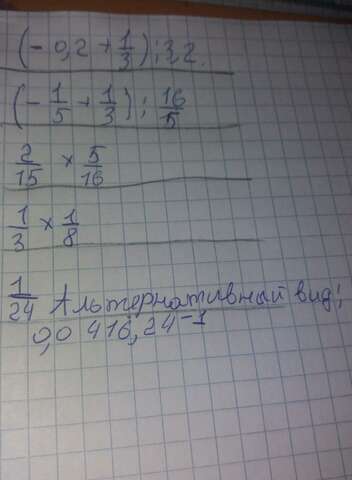 (- 0,2 + 1/3) : 3,2.
(- 1/5 + 1/3) : 16/5
2/15 × 5/16
1/3 × 1/8
1/24 Альтернативный вид:
0,0 416, 24⁻¹